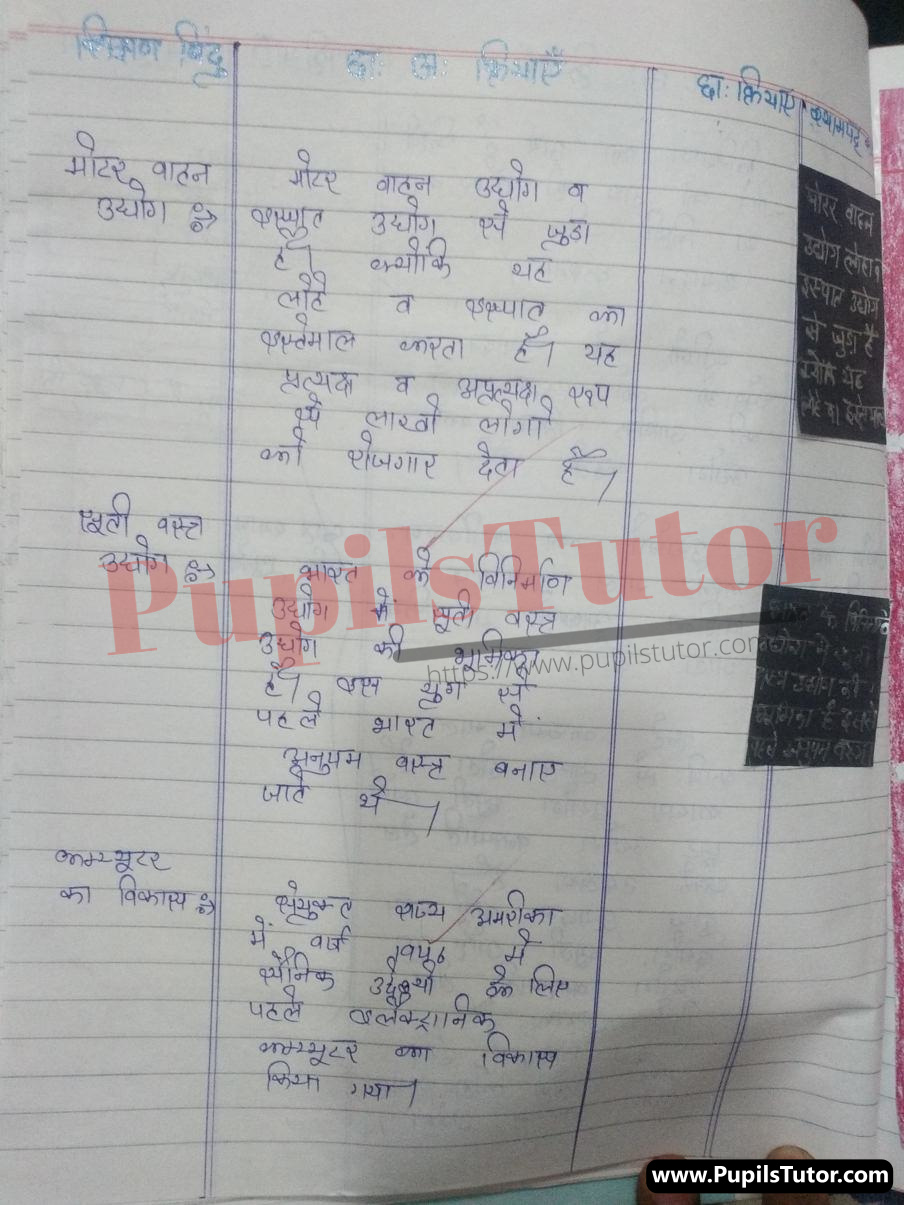 शिक्षण बिंदु
छा: अ: क्रियाएँ
छा: क्रियाएं
श्यामपट्ट
मोटर वाहन
उद्योग ⇒
मोटर वाहन उद्योग व
इस्पात उद्योग से जुडा
है। क्योकि यह
लोहे व इस्पात का
इस्तेमाल करता है। यह
प्रत्यक्ष व अप्रत्यक्ष रुप
से लाखो लोगो
को रोजगार देता है।
मोटर वाहन
उद्योग लोहा व
इस्पात उद्योग
से जुड़ा है
क्योंकि यह
लोहे का इस्तेमाल
सूती वस्त्र
उद्योग ⇒
भारत के विनिर्माण
उद्योग में सूती वस्त्र
उद्योग की भूमिका
है। इस युग से
पहले भारत में
अनुपम वस्त्र बनाए
जाते थे।
के विनिर्माण
उद्योग में सूती
वस्त्र उद्योग की
भूमिका है इससे
पहले अनुपम वस्त्र
कम्प्यूटर
का विकास ⇒
संयुक्त राज्य अमरीका
में वर्ष में
सैनिक उद्देश्यो के लिए
पहले इलेक्ट्रानिक
कम्प्यूटर का विकास
किया गया।
PupilsTutor
https://www.pupilstutor.com
www.PupilsTutor.com